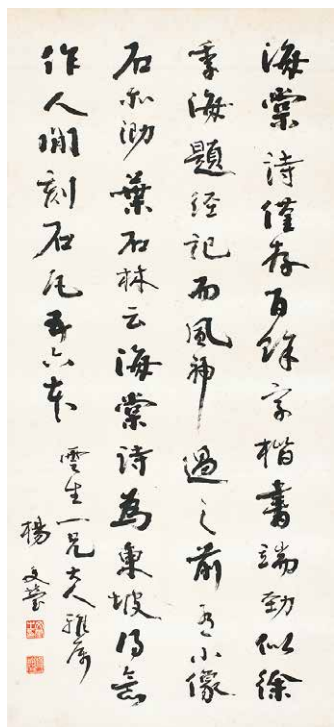 海棠詩僅存百餘字楷書端勁似徐
季海題經記而風神過之前有小像
石亦泐葉石林云海棠詩為東坡得意
作人間刻石凡五六本
雲生一兄大人雅屬
楊文瑩